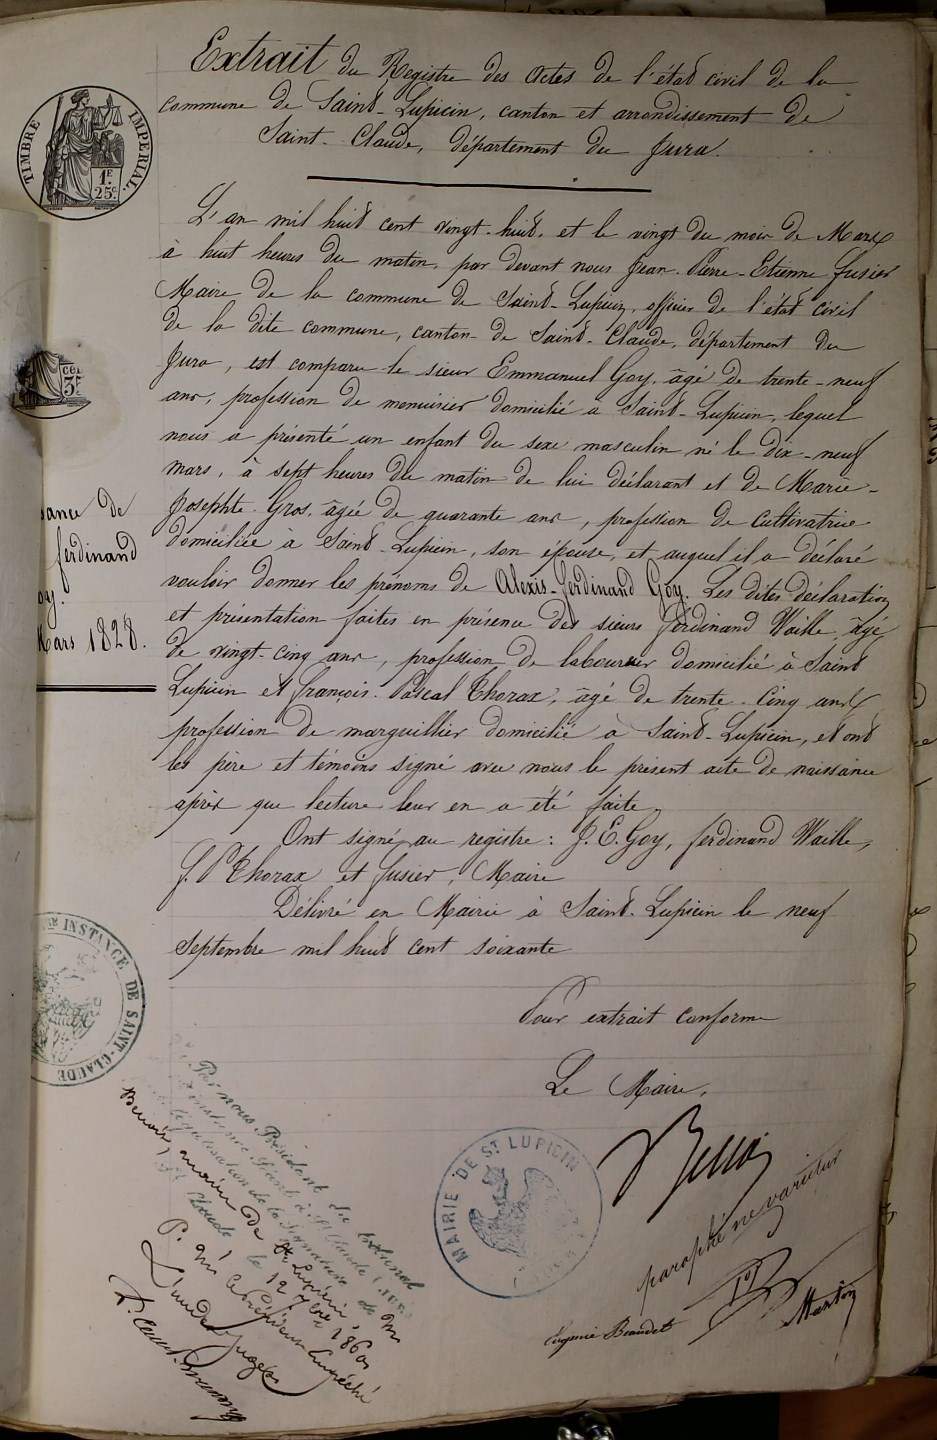 Extrait du Registre des actes de l'état civil de la
commune de Saint-Lupicin, canton et arrondissement de
Saint-Claude, département du Jura.
TIMBRE IMPERIAL
1F 25c
L'an mil huit cent vingt-huit, et le vingt du mois de Mars
à huit heures du matin, par devant nous Jean-Pierre-Etienne Fusier
Maire de la commune de Saint-Lupicin, officier de l'état civil
de la dite commune, canton de Saint-Claude, département du
Jura, est comparu le sieur Emmanuel Goy, âgé de trente-neuf
ans, profession de menuisier domicilié à Saint-Lupicin, lequel
nous a présenté un enfant du sexe masculin né le dix-neuf
mars, à sept heures du matin de lui déclarant et de Marie-
Josephte Gros, âgée de quarante ans, profession de cultivatrice
domiciliée à Saint-Lupicin, son épouse, et auquel il a déclaré
vouloir donner les prénoms de Alexis-Ferdinand Goy. Les dites déclaration
et présentation faites en présence des sieurs Ferdinand Waille, âgé
de vingt-cinq ans, profession de laboureur domicilié à Saint
Lupicin et François-Pascal Thorax, âgé de trente-cinq ans
profession de marguillier domicilié à Saint-Lupicin, et ont
les père et témoins signé avec nous le présent acte de naissance
après que lecture leur en a été faite.
Ont signé au registre: J. E. Goy, Ferdinand Waille,
F. P. Thorax et Fusier, Maire
Délivré en Mairie à Saint-Lupicin le neuf
septembre mil huit cent soixante
Pour extrait conforme
Le Maire,
sance de
Ferdinand
oy.
Mars 1828.
INSTANCE DE SAINT-CLAUDE
Par nous Président du tribunal
légalisation de la signature de
Benoit, maire de St Lupicin
St Claude le 12 7bre 1860
P. le Président empêché
L'un des Juges
MAIRIE DE ST LUPICIN
Benoit
paraphé ne varietur
Eugénie Beaudet
Marton